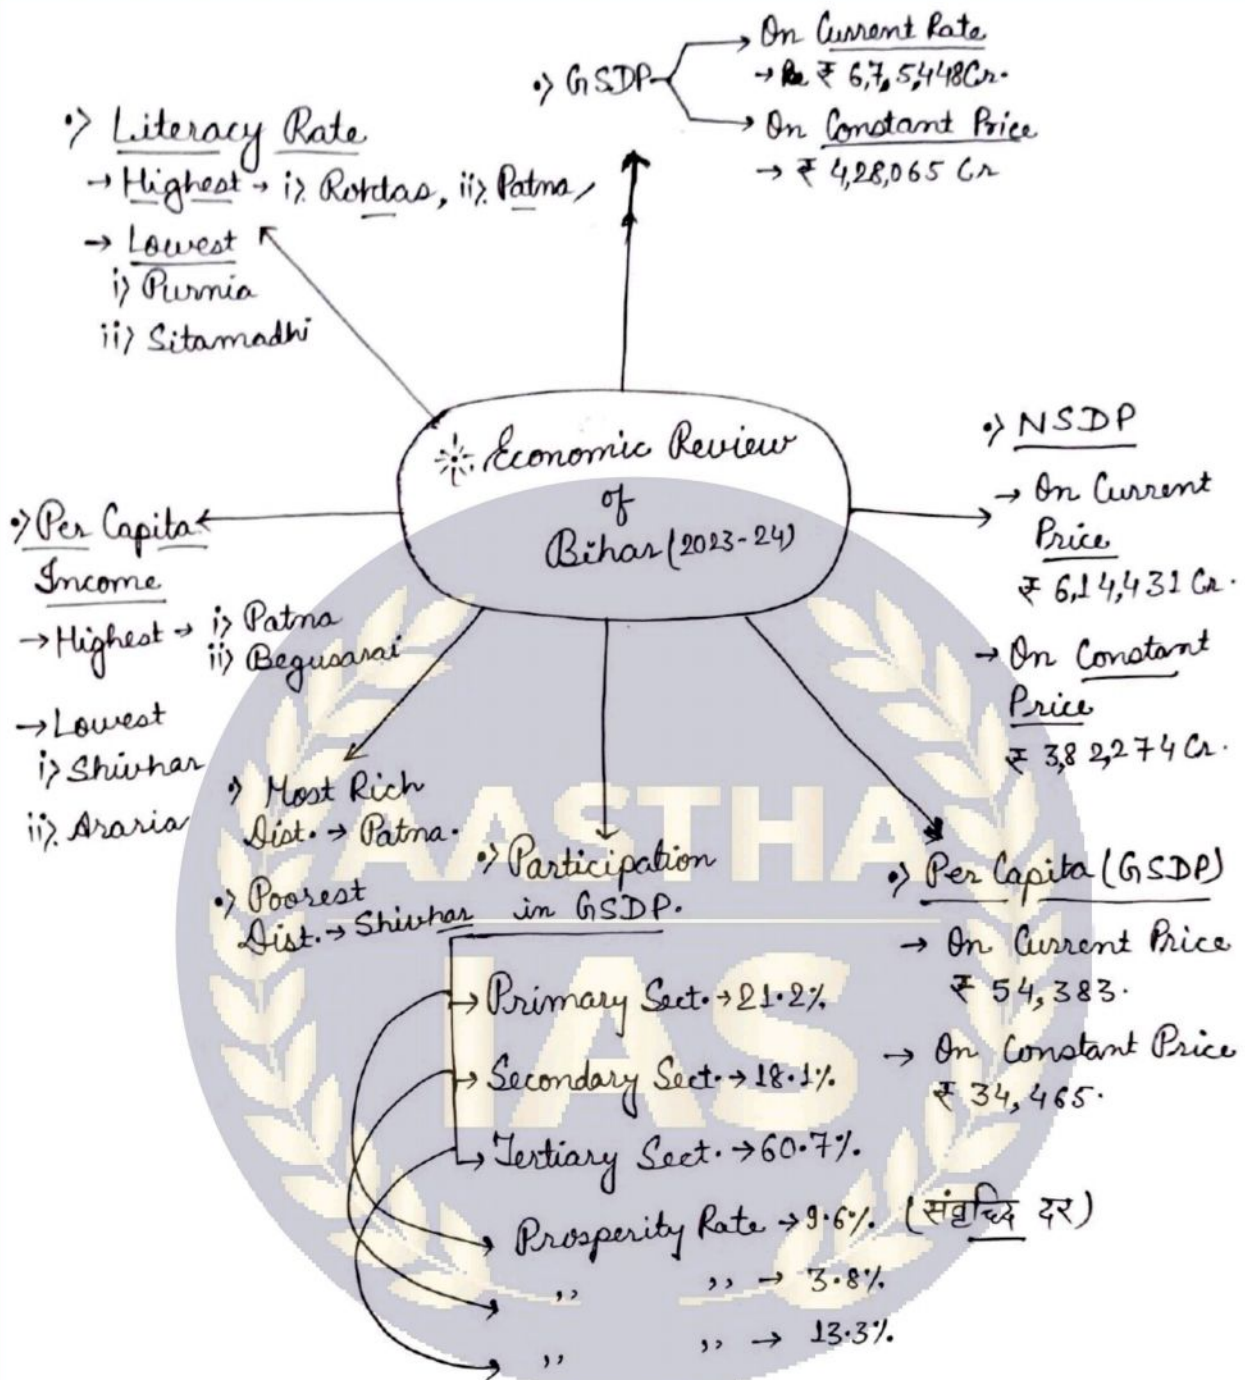 •> GSDP
On Current Rate
→ ₹ 6,7,5,448 Cr.
On Constant Price
→ ₹ 4,28,065 Cr
•> Literacy Rate
→ Highest → i>. Rohtas, ii>. Patna
→ Lowest
i> Purnia
ii> Sitamadhi
※ Economic Review
of
Bihar (2023-24)
•> NSDP
→ On Current
Price
₹ 6,14,431 Cr.
→ On Constant
Price
₹ 3,82,274 Cr.
•> Per Capita
Income
→ Highest → i> Patna
ii> Begusarai
→ Lowest
i> Shivhar
ii>. Araria
•> Most Rich
Dist. → Patna.
•> Poorest
Dist. → Shivhar
•> Participation
in GSDP.
→ Primary Sect. → 21.2%
→ Secondary Sect. → 18.1%
→ Tertiary Sect. → 60.7%.
Prosperity Rate → 9.6%. (संवृद्धि दर)
,, ,, → 3.8%.
,, ,, → 13.3%.
•> Per Capita (GSDP)
→ On Current Price
₹ 54,383.
→ On Constant Price
₹ 34,465.
AASTHA
IAS